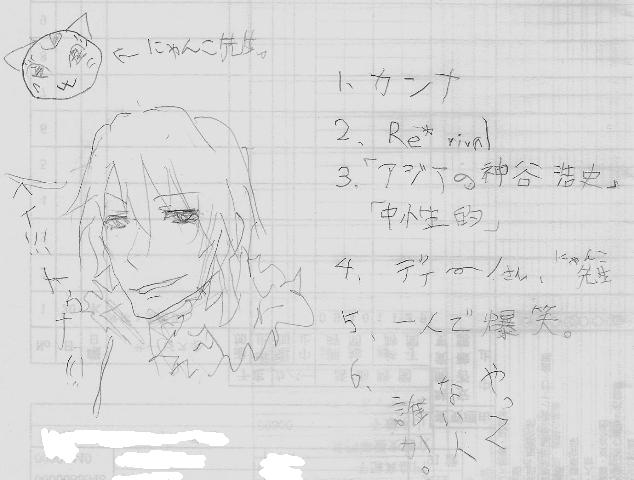 ←にゃんこ先生。
1、カンナ
2、Re*rival
3、「アジアの神谷浩史」
「中性的」
4、ディーノさん、にゃんこ先生
5、一人で爆笑。
6、やって
ない人
誰か。
ヘイ!!!